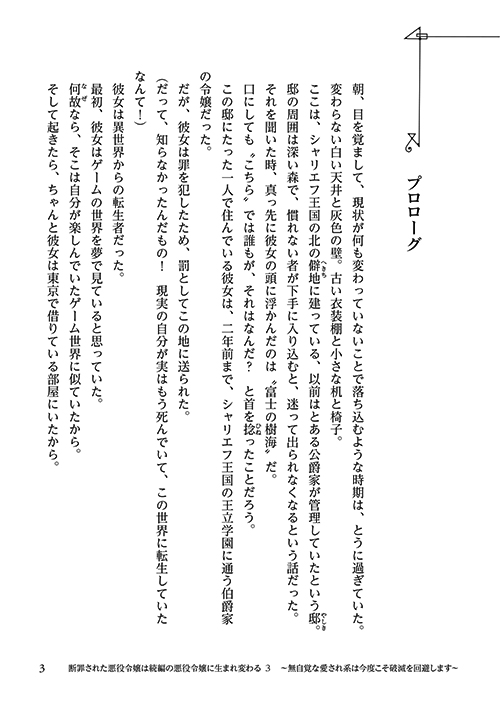 プロローグ
朝、目を覚まして、現状が何も変わっていないことで落ち込むような時期は、とうに過ぎていた。
変わらない白い天井と灰色の壁。古い衣装棚と小さな机と椅子。
ここは、シャリエフ王国の北の僻地に建っている、以前はとある公爵家が管理していたという邸。
へきち
やしき
邸の周囲は深い森で、慣れない者が下手に入り込むと、迷って出られなくなるという話だった。
それを聞いた時、真っ先に彼女の頭に浮かんだのは〝富士の樹海〟だ。
口にしても〝こちら〟では誰もが、それはなんだ？　と首を捻ったことだろう。
ひね
この邸にたった一人で住んでいる彼女は、二年前まで、シャリエフ王国の王立学園に通う伯爵家
の令嬢だった。
だが、彼女は罪を犯したため、罰としてこの地に送られた。
（だって、知らなかったんだもの！　現実の自分が実はもう死んでいて、この世界に転生していた
なんて！）
彼女は異世界からの転生者だった。
最初、彼女はゲームの世界を夢で見ていると思っていた。
何故なら、そこは自分が楽しんでいたゲーム世界に似ていたから。
なぜ
そして起きたら、ちゃんと彼女は東京で借りている部屋にいたから。
3　断罪された悪役令嬢は続編の悪役令嬢に生まれ変わる 3　～無自覚な愛され系は今度こそ破滅を回避します～